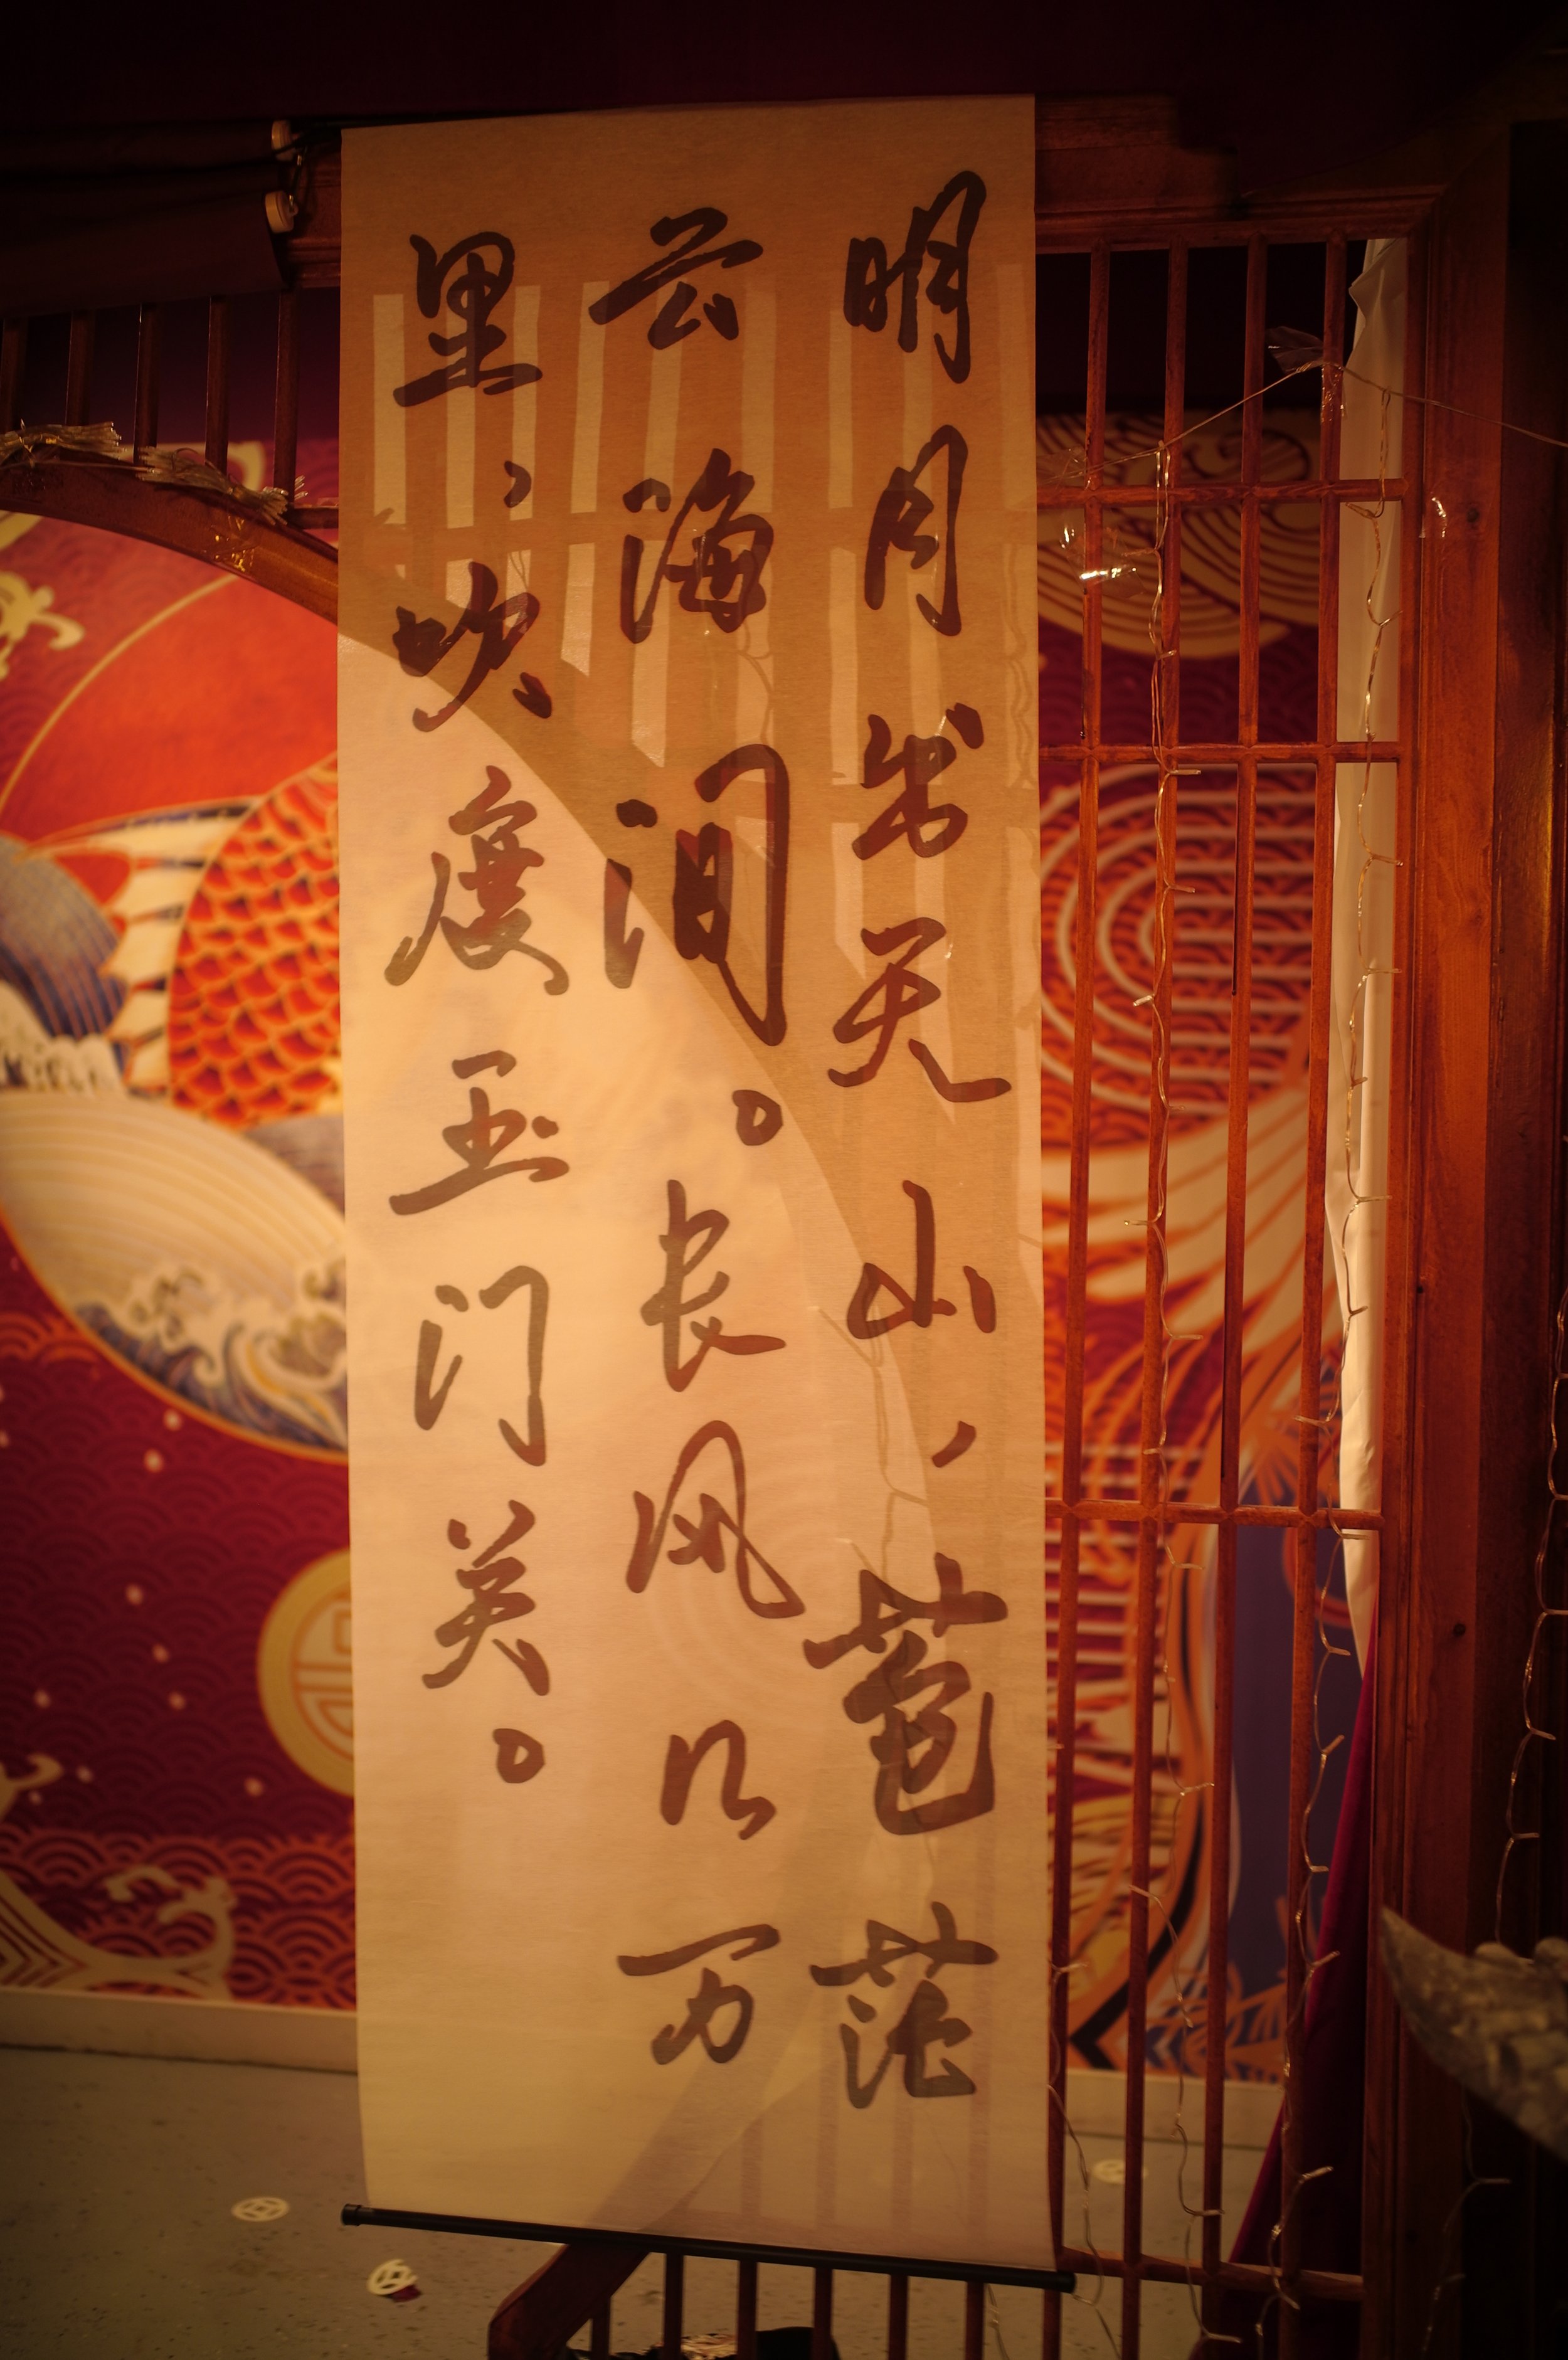 明月出天山，苍茫
云海间。长风几万
里，吹度玉门关。